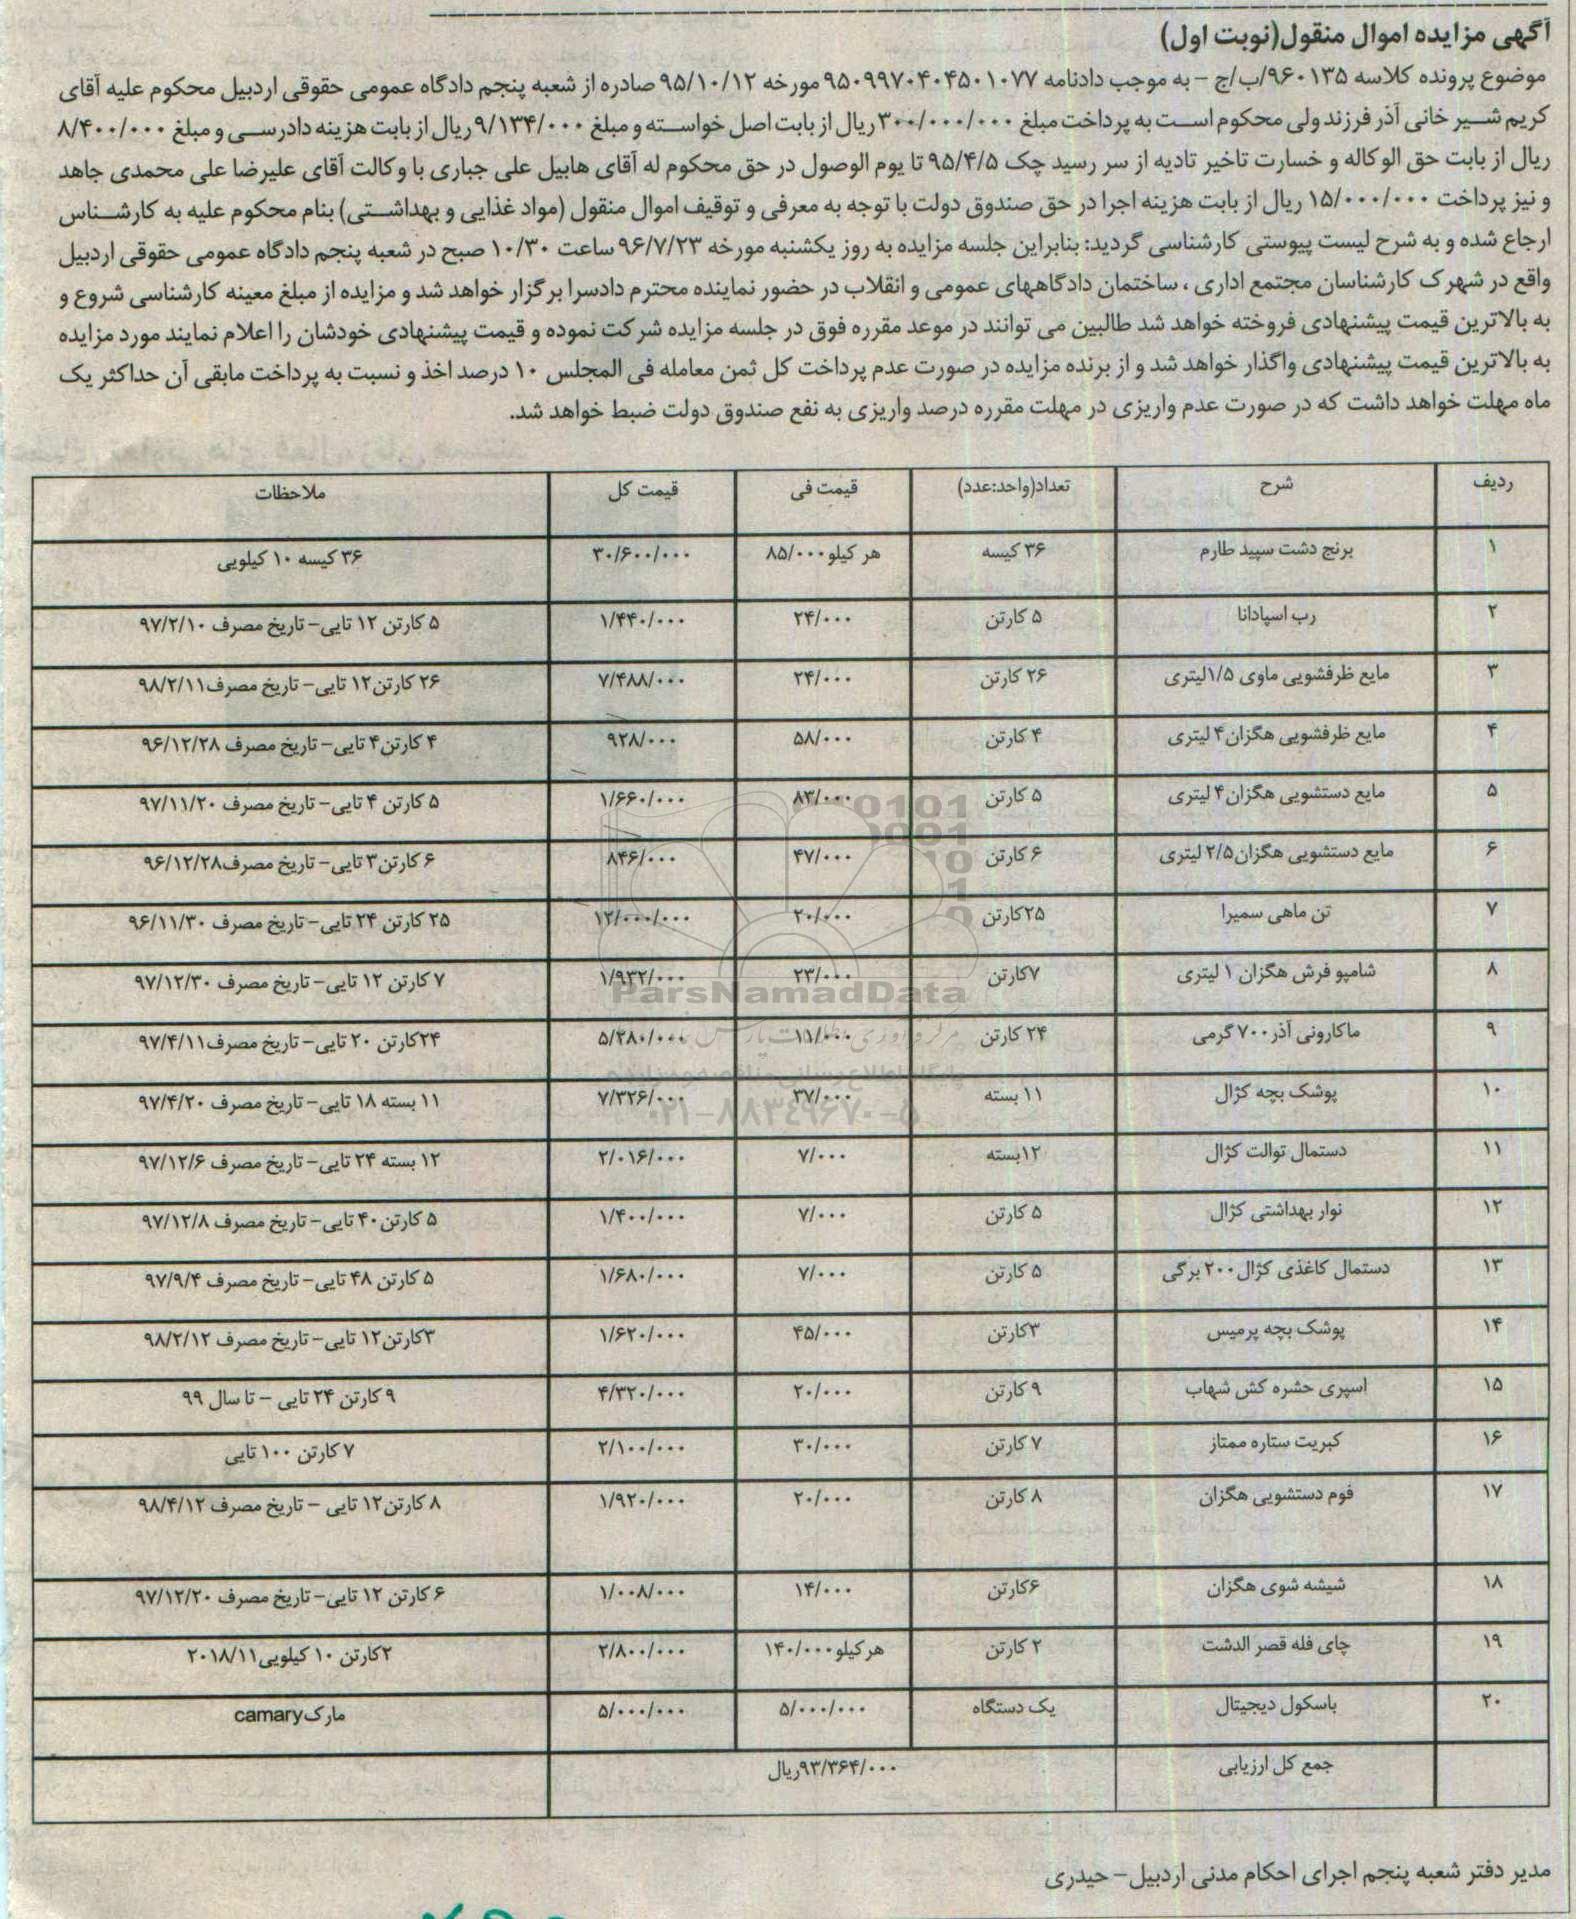 آگهی مزایده اموال منقول(نوبت اول)
موضوع پرونده کلاسه ۹۶۰۱۳۵/ب/ج – به موجب دادنامه ۹۵۰۹۹۷۰۴۰۴۵۰۱۰۷۷ مورخه ۹۵/۱۰/۱۲ صادره از شعبه پنجم دادگاه عمومی حقوقی اردبیل محکوم علیه آقای
کریم شیر خانی آذر فرزند ولی محکوم است به پرداخت مبلغ ۳۰۰/۰۰۰/۰۰۰ ریال از بابت اصل خواسته و مبلغ ۹/۱۳۴/۰۰۰ ریال از بابت هزینه دادرسی و مبلغ ۸/۴۰۰/۰۰۰
ریال از بابت حق الوکاله و خسارت تاخیر تادیه از سر رسید چک ۹۵/۴/۵ تا یوم الوصول در حق محکوم له آقای هابیل علی جباری با وکالت آقای علیرضا علی محمدی جاهد
و نیز پرداخت ۱۵/۰۰۰/۰۰۰ ریال از بابت هزینه اجرا در حق صندوق دولت با توجه به معرفی و توقیف اموال منقول (مواد غذایی و بهداشتی) بنام محکوم علیه به کارشناس
ارجاع شده و به شرح لیست پیوستی کارشناسی گردید: بنابراین جلسه مزایده به روز یکشنبه مورخه ۹۶/۷/۲۳ ساعت ۱۰/۳۰ صبح در شعبه پنجم دادگاه عمومی حقوقی اردبیل
واقع در شهرک کارشناسان مجتمع اداری ، ساختمان دادگاههای عمومی و انقلاب در حضور نماینده محترم دادسرا برگزار خواهد شد و مزایده از مبلغ معینه کارشناسی شروع و
به بالاترین قیمت پیشنهادی فروخته خواهد شد طالبین می توانند در موعد مقرره فوق در جلسه مزایده شرکت نموده و قیمت پیشنهادی خودشان را اعلام نمایند مورد مزایده
به بالاترین قیمت پیشنهادی واگذار خواهد شد و از برنده مزایده در صورت عدم پرداخت کل ثمن معامله فی المجلس ۱۰ درصد اخذ و نسبت به پرداخت مابقی آن حداکثر یک
ماه مهلت خواهد داشت که در صورت عدم واریزی در مهلت مقرره درصد واریزی به نفع صندوق دولت ضبط خواهد شد.
ردیف شرح تعداد(واحد:عدد) قیمت فی قیمت کل ملاحظات
۱ برنج دشت سپید طارم ۳۶ کیسه هر کیلو ۸۵/۰۰۰ ۳۰/۶۰۰/۰۰۰ ۳۶ کیسه ۱۰ کیلویی
۲ رب اسپادانا ۵ کارتن ۲۴/۰۰۰ ۱/۴۴۰/۰۰۰ ۵ کارتن ۱۲ تایی– تاریخ مصرف ۹۷/۲/۱۰
۳ مایع ظرفشویی ماوی ۱/۵لیتری ۲۶ کارتن ۲۴/۰۰۰ ۷/۴۸۸/۰۰۰ ۲۶ کارتن۱۲ تایی– تاریخ مصرف۹۸/۲/۱۱
۴ مایع ظرفشویی هگزان۴ لیتری ۴ کارتن ۵۸/۰۰۰ ۹۲۸/۰۰۰ ۴ کارتن۴ تایی– تاریخ مصرف ۹۶/۱۲/۲۸
۵ مایع دستشویی هگزان۴ لیتری ۵ کارتن ۸۳/۰۰۰ ۱/۶۶۰/۰۰۰ ۵ کارتن ۴ تایی– تاریخ مصرف ۹۷/۱۱/۲۰
۶ مایع دستشویی هگزان۲/۵ لیتری ۶ کارتن ۴۷/۰۰۰ ۸۴۶/۰۰۰ ۶ کارتن۳ تایی– تاریخ مصرف۹۶/۱۲/۲۸
۷ تن ماهی سمیرا ۲۵کارتن ۲۰/۰۰۰ ۱۲/۰۰۰/۰۰۰ ۲۵ کارتن ۲۴ تایی– تاریخ مصرف ۹۶/۱۱/۳۰
۸ شامپو فرش هگزان ۱ لیتری ۷کارتن ۲۳/۰۰۰ ۱/۹۳۲/۰۰۰ ۷ کارتن ۱۲ تایی– تاریخ مصرف ۹۷/۱۲/۳۰
۹ ماکارونی آذر۷۰۰ گرمی ۲۴ کارتن ۱۱/۰۰۰ ۵/۲۸۰/۰۰۰ ۲۴کارتن ۲۰ تایی– تاریخ مصرف۹۷/۴/۱۱
۱۰ پوشک بچه کژال ۱۱ بسته ۳۷/۰۰۰ ۷/۳۲۶/۰۰۰ ۱۱ بسته ۱۸ تایی– تاریخ مصرف ۹۷/۴/۲۰
۱۱ دستمال توالت کژال ۱۲بسته ۷/۰۰۰ ۲/۰۱۶/۰۰۰ ۱۲ بسته ۲۴ تایی– تاریخ مصرف ۹۷/۱۲/۶
۱۲ نوار بهداشتی کژال ۵ کارتن ۷/۰۰۰ ۱/۴۰۰/۰۰۰ ۵ کارتن۴۰ تایی– تاریخ مصرف ۹۷/۱۲/۸
۱۳ دستمال کاغذی کژال۲۰۰ برگی ۵ کارتن ۷/۰۰۰ ۱/۶۸۰/۰۰۰ ۵ کارتن ۴۸ تایی– تاریخ مصرف ۹۷/۹/۴
۱۴ پوشک بچه پرمیس ۳کارتن ۴۵/۰۰۰ ۱/۶۲۰/۰۰۰ ۳کارتن۱۲ تایی– تاریخ مصرف ۹۸/۲/۱۲
۱۵ اسپری حشره کش شهاب ۹ کارتن ۲۰/۰۰۰ ۴/۳۲۰/۰۰۰ ۹ کارتن ۲۴ تایی – تا سال ۹۹
۱۶ کبریت ستاره ممتاز ۷ کارتن ۳۰/۰۰۰ ۲/۱۰۰/۰۰۰ ۷ کارتن ۱۰۰ تایی
۱۷ فوم دستشویی هگزان ۸ کارتن ۲۰/۰۰۰ ۱/۹۲۰/۰۰۰ ۸ کارتن۱۲ تایی – تاریخ مصرف ۹۸/۴/۱۲
۱۸ شیشه شوی هگزان ۶کارتن ۱۴/۰۰۰ ۱/۰۰۸/۰۰۰ ۶ کارتن ۱۲ تایی– تاریخ مصرف ۹۷/۱۲/۲۰
۱۹ چای فله قصر الدشت ۲ کارتن هرکیلو ۱۴۰/۰۰۰ ۲/۸۰۰/۰۰۰ ۲کارتن ۱۰ کیلویی۲۰۱۸/۱۱
۲۰ باسکول دیجیتال یک دستگاه ۵/۰۰۰/۰۰۰ ۵/۰۰۰/۰۰۰ مارکcamary
جمع کل ارزیابی ۹۳/۳۶۴/۰۰۰ریال
ParsNamadData
۰۲۱-۸۸۳۴۹۶۷۰-۵
مدیر دفتر شعبه پنجم اجرای احکام مدنی اردبیل– حیدری